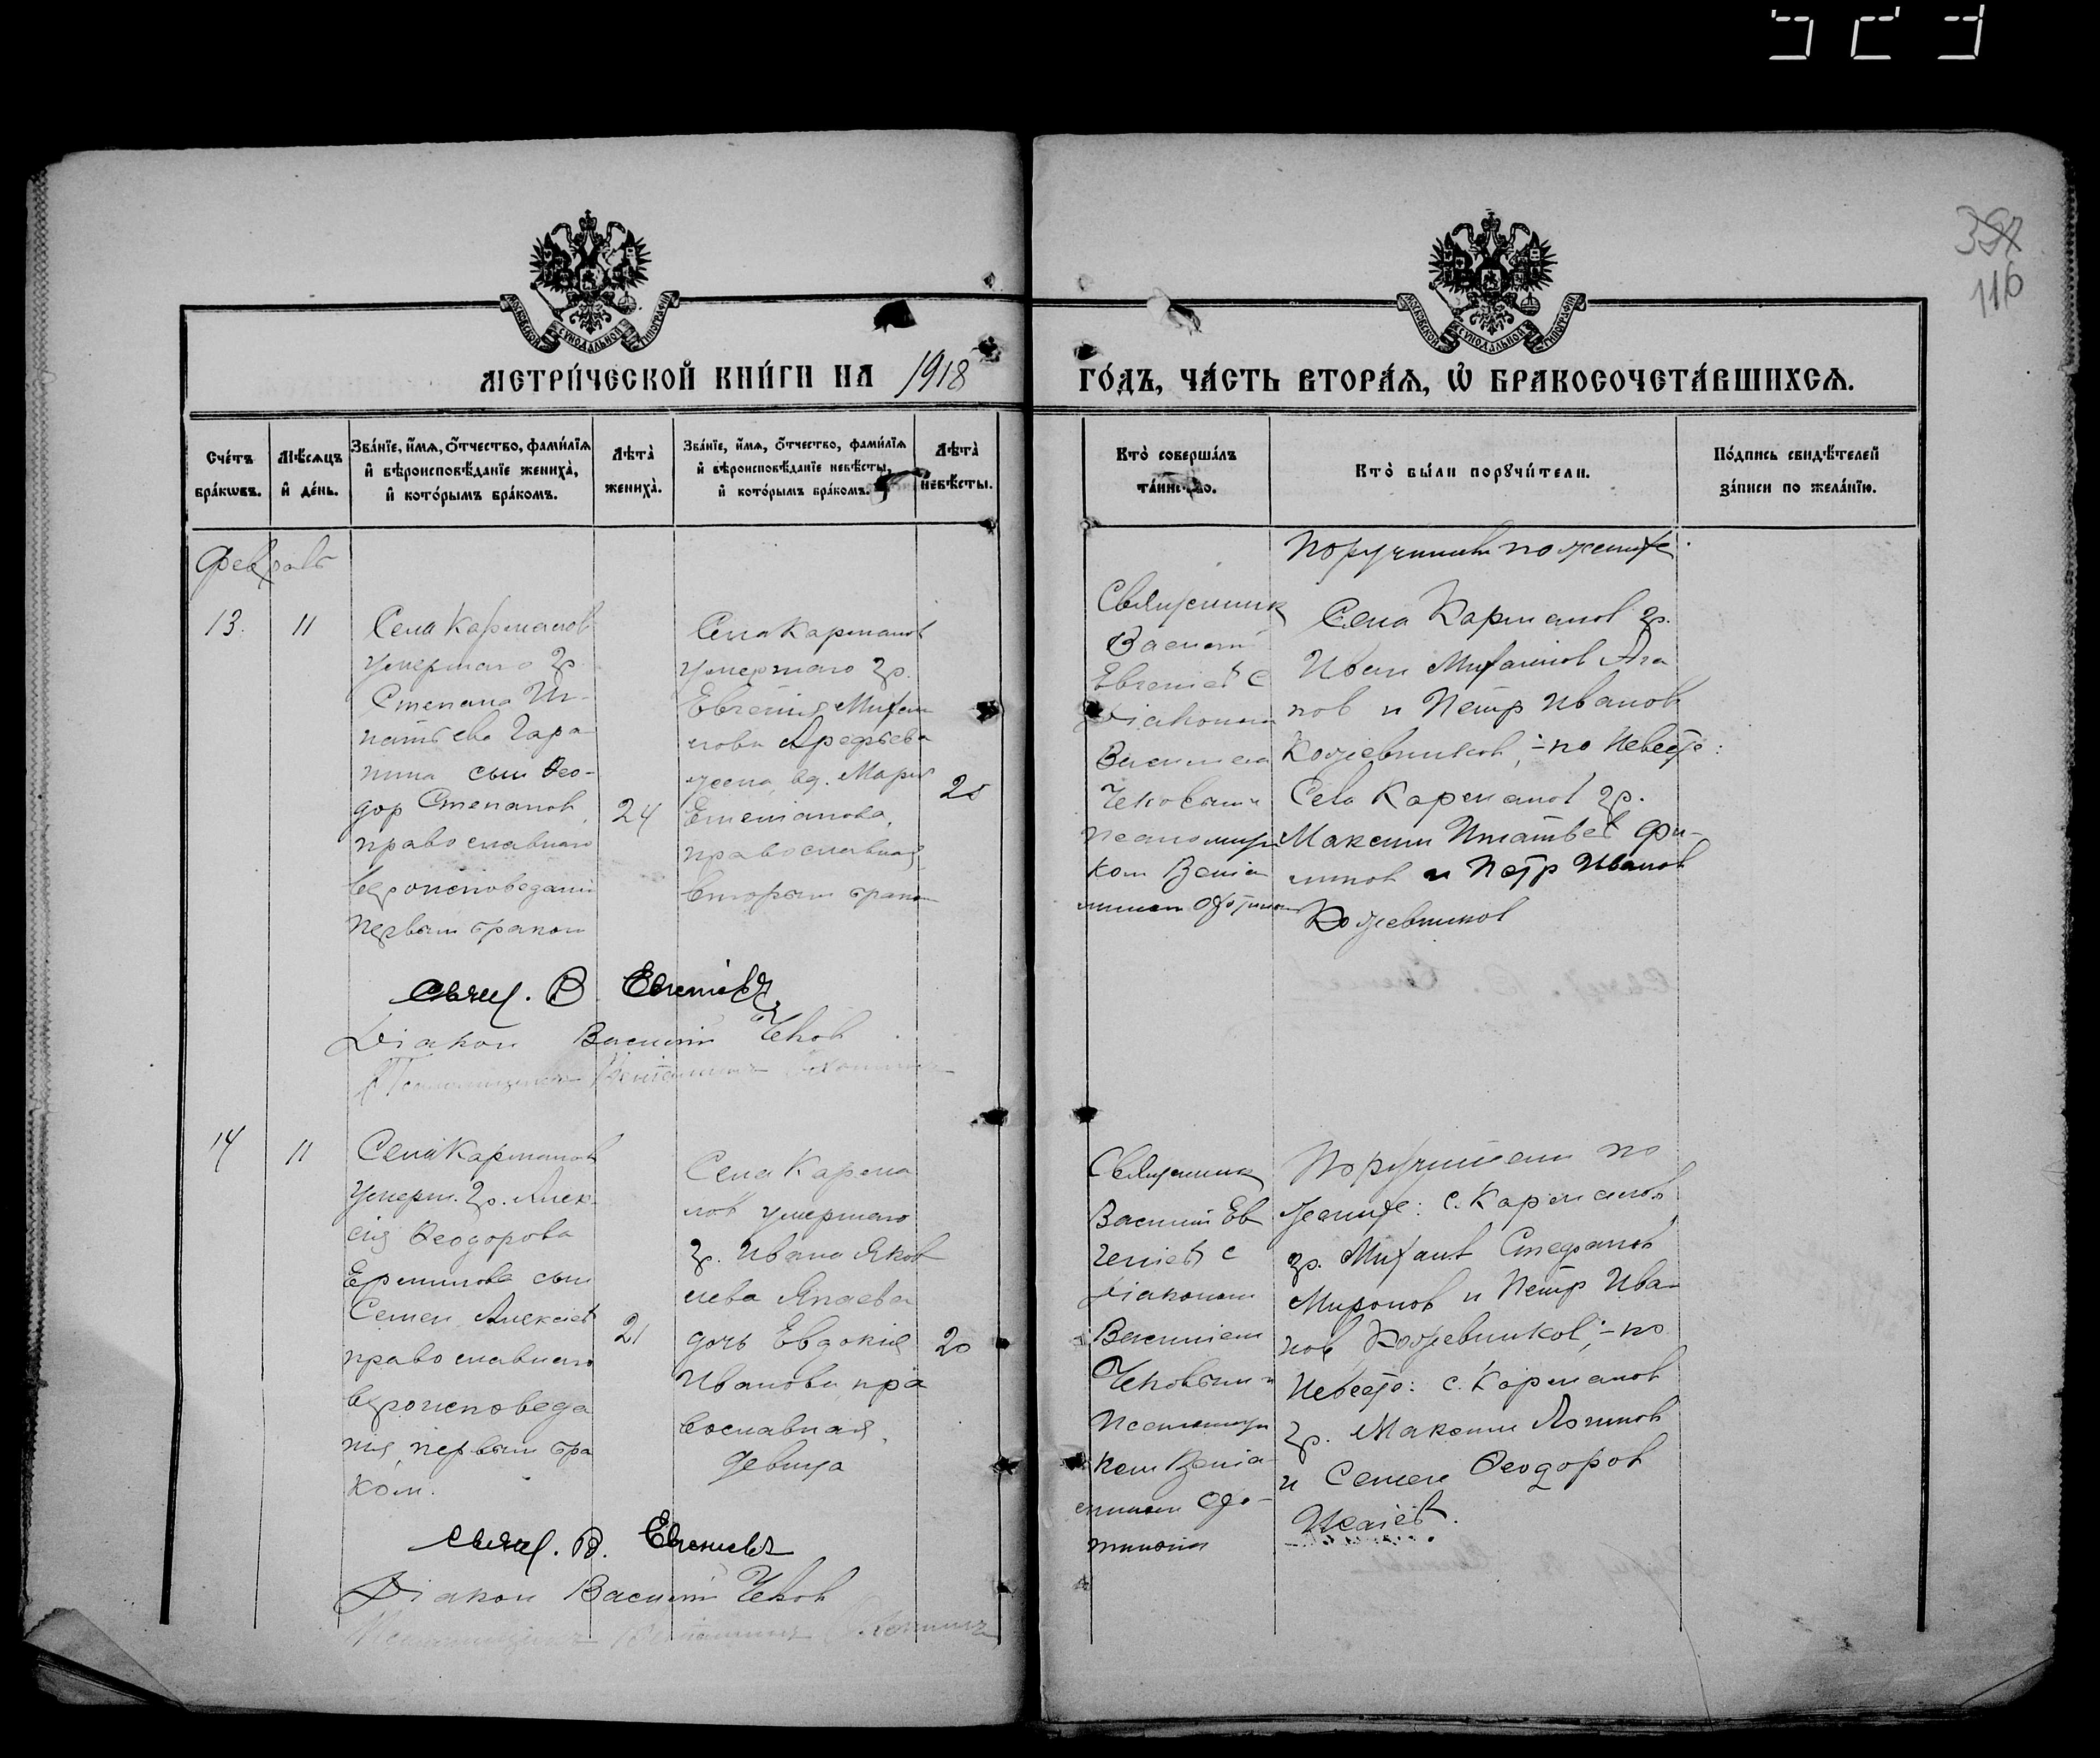 116
МЕТРИ́ЧЕСКОЙ КНИ́ГИ НА 1918
ГО́ДЪ, ЧА́СТЬ ВТОРА́Я, Ѿ БРАКОСОЧЕТА́ВШИХСЯ.
Сче́тъ бра́кѡвъ.
Мѣ́сяцъ и҆ де́нь.
Зва́нїе, и҆́мя, ѻ҆́тчество, фами́лїя
и҆ вѣроисповѣ́данїе жениха̀,
и҆ кото́рымъ бра́комъ.
Лѣ́та̀ жениха̀.
Зва́нїе, и҆́мя, ѻ҆́тчество, фами́лїя
и҆ вѣроисповѣ́данїе невѣ́сты,
и҆ кото́рымъ бра́комъ.
Лѣ́та̀ невѣ́сты.
Кто̀ соверша́лъ
та́инство.
Кто̀ бы́ли порꙋчи́тели.
По́дпись свидѣ́телей
за́писи по жела́нїю.
Февраль
13.
11
Села Карманов
умершаго гр.
Степана Иг-
натьева Гара
нина сын Фео-
дор Степанов,
православнаго
вероисповедания
первым браком
24
Села Карманов
умершаго гр.
Евгения Михаи
лова Арефьева
жена, вд. Мария
православная
вторым браком
Священник
Василий
Евгениев с
Диаконом
Василием
Чековым и
псаломщи
ком Вениа
мином
Поручители по женихе
Села Карманов гр.
Иван Михаилов Ага
пов и Петр Иванов
Кожевников; - по невесте:
Села Карманов гр.
Максим Игнатьев Фи-
липов и Петр Иванов
Кожевников
Свящ. В. Евгениев
Диакон Василий Чеков
14
11
Села Карманов
умерш. гр. Алек-
сия Феодорова
Еремилова сын
Семен Алексиев
православнаго
вероисповеда
ния, первым бра
ком.
21
Села Карма
нов умершаго
гр. Ивана Яков
лева Япаева
дочь Евдокия
Иванова пра
вославная,
девица
20
Священник
Василий Ев
гениев с
Диаконом
Василием
Чековым и
Псаломщи
ком Вениа
мином
Поручители по
женихе: с. Карманов
гр. Михаил Стефанов
Миронов и Петр Ива-
нов Кожевников; - по
невесте: с. Карманов
гр. Максим Логинов
и Семен Феодоров
Исаиев.
Свящ. В. Евгениев
Диакон Василий Чеков